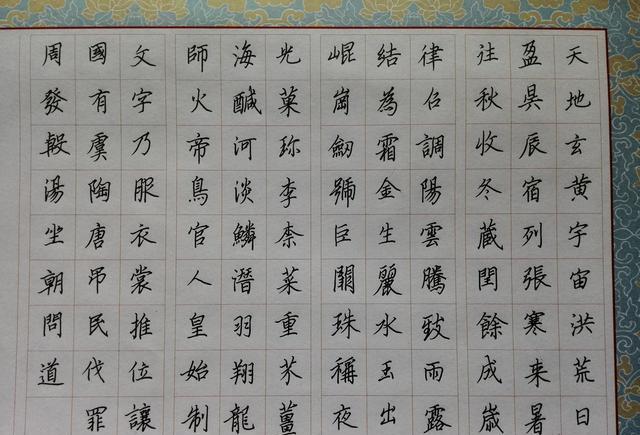 天地玄黄宇宙洪荒日
盈昃辰宿列張寒来暑
往秋收冬蔵閏餘成歳
律召調陽雲騰致雨露
結為霜金生麗水玉出
崐崗劒號巨闕珠稱夜
光菓珎李柰菜重芥薑
海醎河淡鱗潛羽翔龍
師火帝鳥官人皇始制
文字乃服衣裳推位讓
國有虞陶唐吊民伐罪
周發殷湯坐朝問道